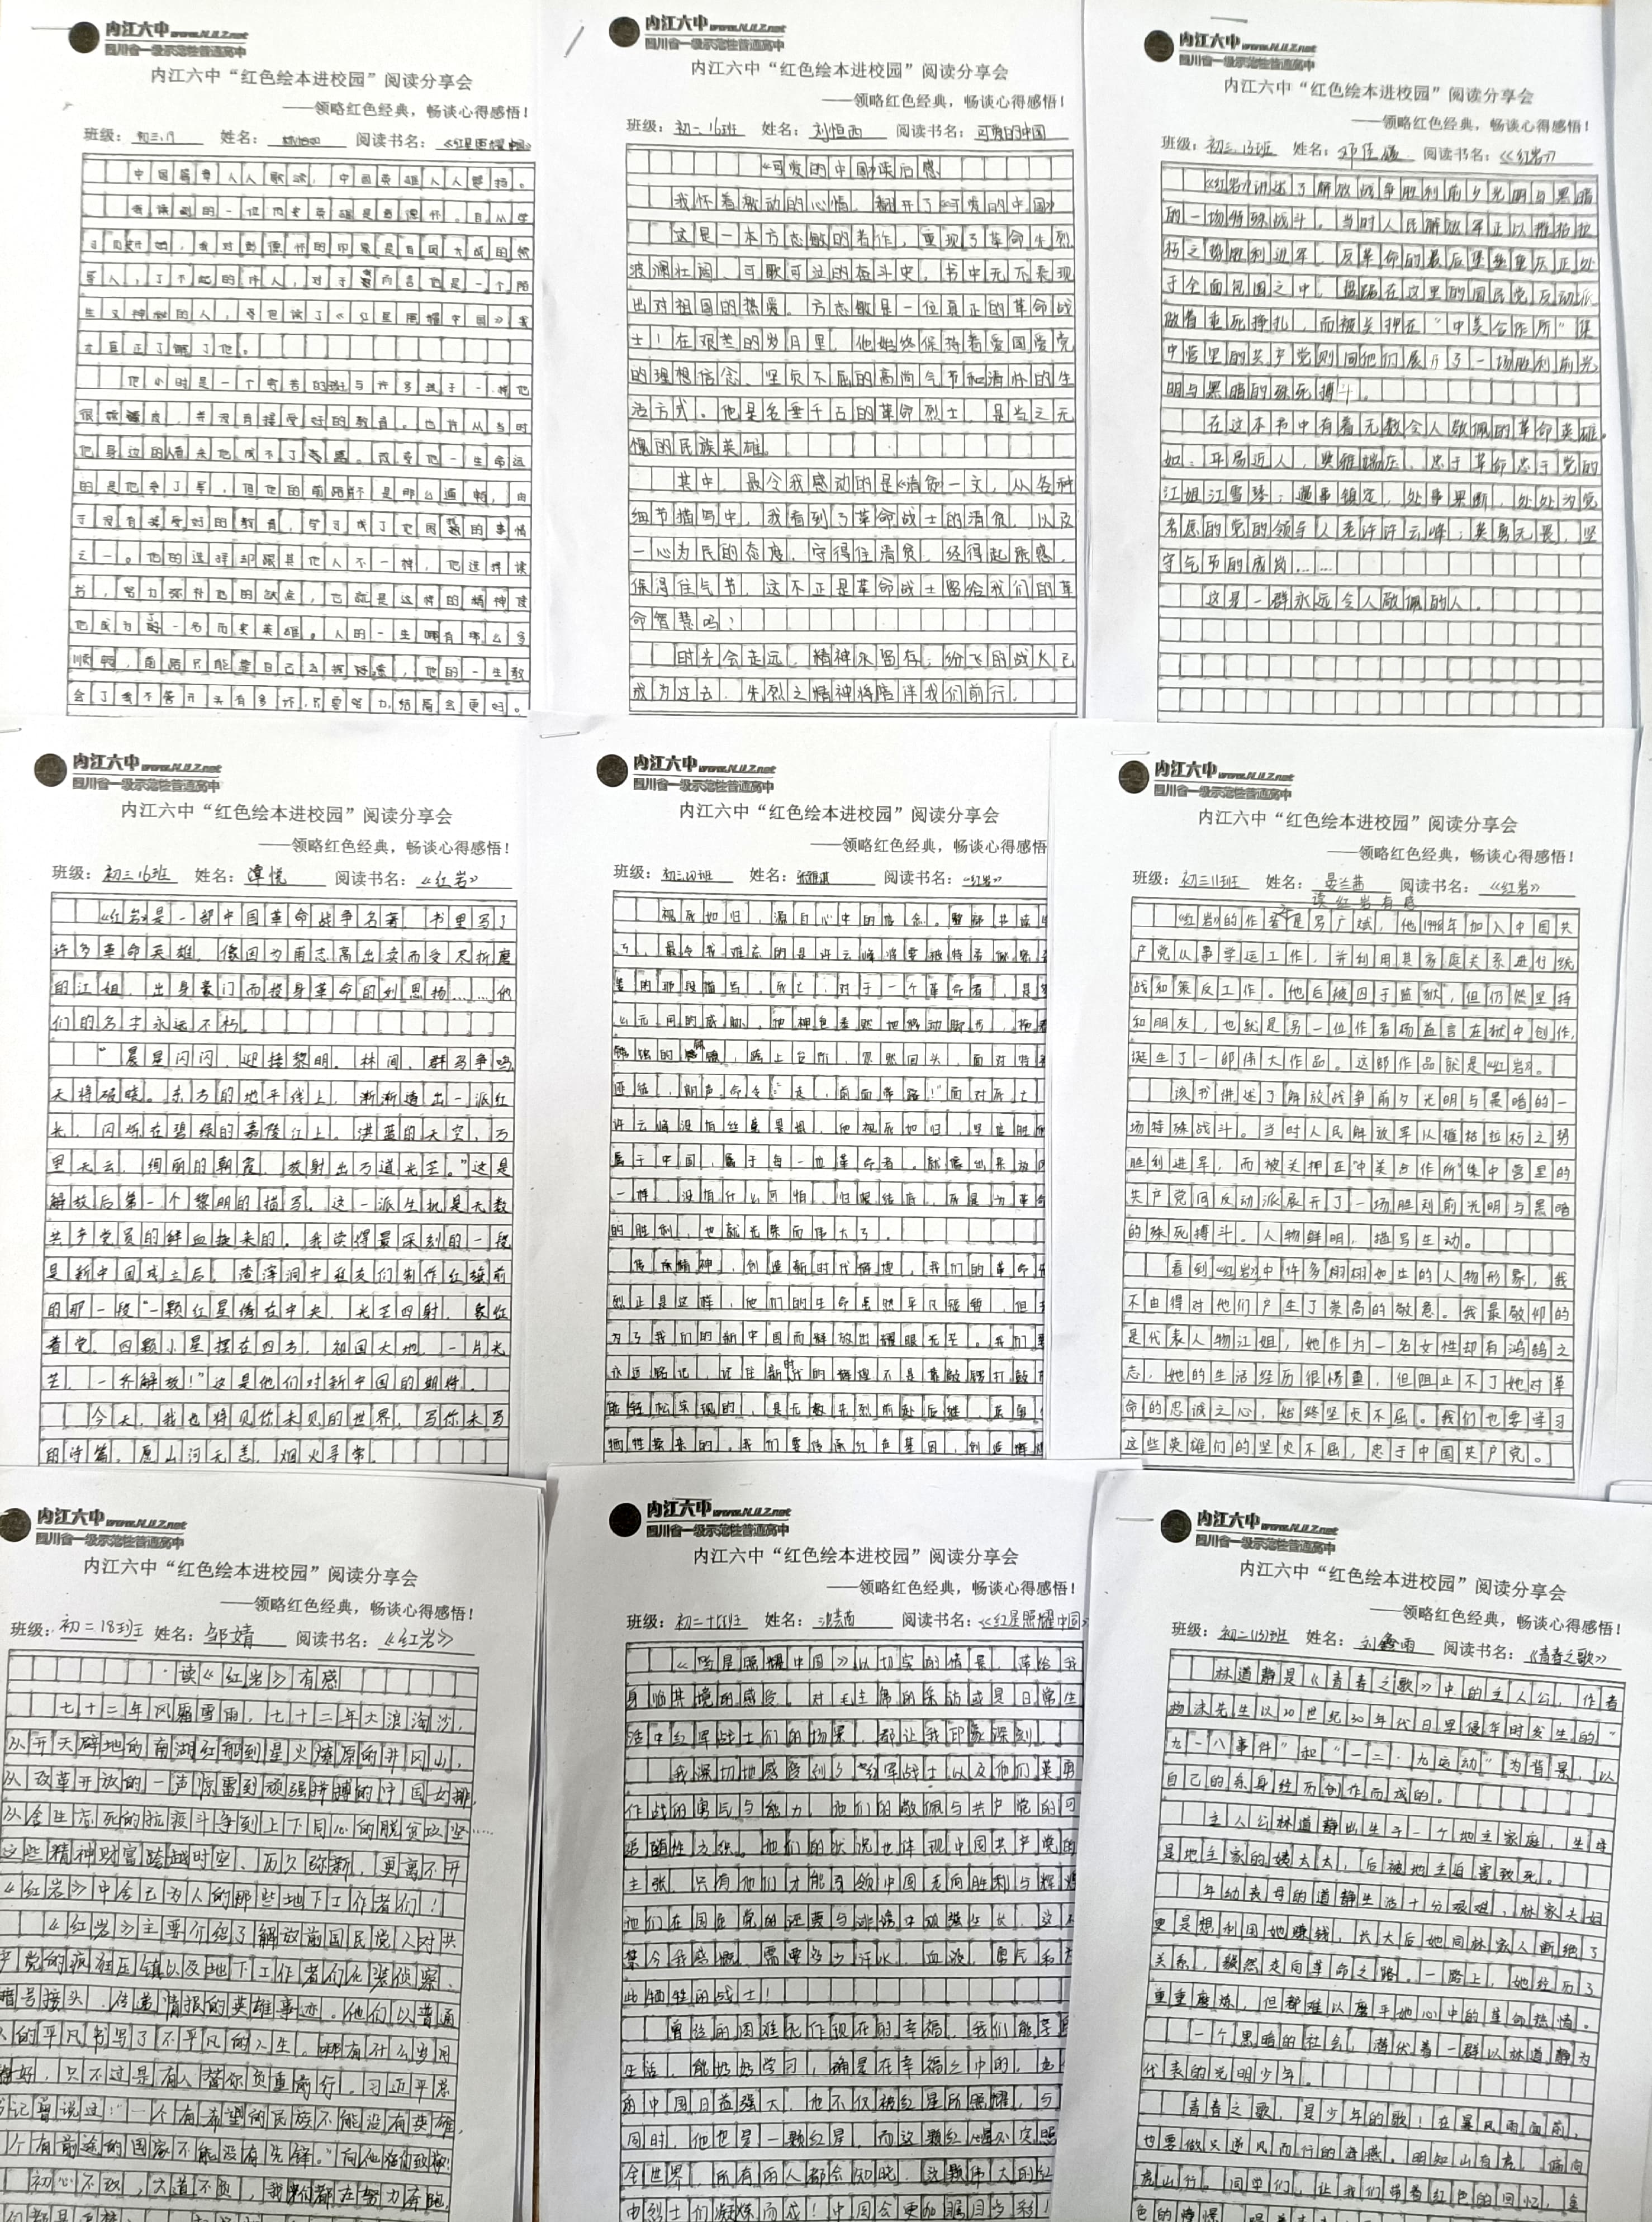 内江六中 www.NJLZ.net
四川省一级示范性普通高中
内江六中“红色绘本进校园”阅读分享会
——领略红色经典，畅谈心得感悟！
班级： 姓名： 阅读书名：《红星照耀中国》
中国篇章人人歌颂，中国英雄人人赞扬。
我读到的一位历史英雄是彭德怀。自从学
习历史开始，我对彭德怀的印象是百团大战的领
导人，了不起的伟人，对于我而言他是一个陌
生又神秘的人，可自读了《红星照耀中国》我
才真正了解了他。
他小时是一个穷苦的孩子与许多孩子一样他
很叛逆，并没有接受好的教育。也许从当时
他身边的人看来他成不了。改变他一生命运
的是他参了军，但他的前路并不是那么通畅，由
于没有接受好的教育，学习成了他困扰的事情
之一。他的选择却跟其他人不一样，他选择读
书，努力弥补他的缺点，也就是这样的精神使
他成为一名历史英雄。人的一生哪有那么多
顺畅，前路只能靠自己去，他的一生教
会了我不管开头有多坏，只要努力，结局会更好。
内江六中 www.NJLZ.net
四川省一级示范性普通高中
内江六中“红色绘本进校园”阅读分享会
——领略红色经典，畅谈心得感悟！
班级：初二、16班 姓名：刘恒西 阅读书名：可爱的中国
《可爱的中国》读后感
我怀着激动的心情，翻开了《可爱的中国》
这是一本方志敏的著作，重现了革命先烈
波澜壮阔、可歌可泣的奋斗史，书中无不表现
出对祖国的热爱。方志敏是一位真正的革命战
士！在艰苦的岁月里，他始终保持着爱国爱党
的理想信念、坚贞不屈的高尚气节和清朴的生
活方式。他是名垂千古的革命烈士，是当之无
愧的民族英雄。
其中，最令我感动的是《清贫》一文，从各种
细节描写中，我看到了革命战士的清贫，以及
一心为民的态度，守得住清贫，经得起诱惑，
保得住气节，这不正是革命战士留给我们的革
命智慧吗？
时光会走远，精神永留存；纷飞的战火已
成为过去，先烈之精神将陪伴我们前行。
内江六中 www.NJLZ.net
四川省一级示范性普通高中
内江六中“红色绘本进校园”阅读分享会
——领略红色经典，畅谈心得感悟！
班级：初三、13班 姓名：邓佳 阅读书名：《红岩》
《红岩》讲述了解放战争胜利前夕光明与黑暗
的一场特殊战斗。当时人民解放军正以摧枯拉
朽之势胜利进军，反革命的最后堡垒重庆正处
于全面包围之中，盘踞在这里的国民党反动派
做着垂死挣扎，而被关押在“中美合作所”集
中营里的共产党则同他们展开了一场胜利前光
明与黑暗的殊死搏斗。
在这本书中有着无数令人敬佩的革命英雄。
如：平易近人，典雅端庄、忠于革命忠于党的
江姐江雪琴；遇事镇定，处事果断，处处为党
考虑的党的领导人老许许云峰；英勇无畏，坚
守气节的成岗……
这是一群永远令人敬佩的人。
内江六中 www.NJLZ.net
四川省一级示范性普通高中
内江六中“红色绘本进校园”阅读分享会
——领略红色经典，畅谈心得感悟！
班级：初三16班 姓名：谭悦 阅读书名：《红岩》
《红岩》是一部中国革命战争名著，书里写了
许多革命英雄。像因为甫志高出卖而受尽折磨
的江姐，出身豪门而投身革命的刘思扬……他
们的名字永远不朽。
“晨星闪闪，迎接黎明。林间，群鸟争鸣，
天将破晓。东方的地平线上，渐渐透出一派红
光，闪烁在碧绿的嘉陵江上。湛蓝的天空，万
里无云，绚丽的朝霞，放射出万道光芒。”这是
解放后第一个黎明的描写。这一派生机是无数
共产党员的鲜血换来的。我读得最深刻的一段
是新中国成立后，渣滓洞中狱友们制作红旗前
的那一段“一颗红星绣在中央，光芒四射，象征
着党。四颗小星摆在四方，祖国大地，一片光
芒，一齐解放！”这是他们对新中国的期待。
今天，我也将见你未见的世界，写你未写
的诗篇。愿山河无恙，烟火寻常。
内江六中 www.NJLZ.net
四川省一级示范性普通高中
内江六中“红色绘本进校园”阅读分享会
——领略红色经典，畅谈心得感悟
班级： 姓名： 阅读书名：《红岩》
视死如归，源自心中的信念。
，最令我难忘的是许云峰将要被特务
的那段描写。死亡，对于一个革命者，是
的威胁。他神色自然地移动脚步，拖着
的脚镣，踏上台阶，忽然回头，面对特务
，朗声命令：“走，前面带路！”面对死亡，
许云峰没有丝毫畏惧，他视死如归，早
属于中国，属于每一位革命者。就
一样，没有什么可怕，
的胜利，也就光荣而伟大了。
传承精神，创造新时代辉煌，我们的革命
烈正是这样，他们的生命虽然平凡，但
为了我们的新中国而鲜放出耀眼光芒。我们
永远铭记，记住新时代的辉煌不是靠敲锣打鼓
能轻松实现的，是无数先烈前赴后继、
牺牲换来的。我们要传承红色基因，创造辉
内江六中 www.NJLZ.net
四川省一级示范性普通高中
内江六中“红色绘本进校园”阅读分享会
——领略红色经典，畅谈心得感悟！
班级：初三11班 姓名：晏兰茜 阅读书名：《红岩》
读红岩有感
《红岩》的作者是罗广斌，他1948年加入中国共
产党从事学运工作，并利用其家庭关系进行统
战和策反工作。他后被囚于监狱，但仍然坚持
和朋友，也就是另一位作者杨益言在狱中创作，
诞生了一部伟大作品。这部作品就是《红岩》。
该书讲述了解放战争前夕光明与黑暗的一
场特殊战斗。当时人民解放军以摧枯拉朽之势
胜利进军，而被关押在“中美合作所”集中营里的
共产党同反动派展开了一场胜利前光明与黑暗
的殊死搏斗。人物鲜明，描写生动。
看到《红岩》中许多栩栩如生的人物形象，我
不由得对他们产生了崇高的敬意。我最敬仰的
是代表人物江姐，她作为一名女性却有鸿鹄之
志，她的生活经历很惨重，但阻止不了她对革
命的忠诚之心，始终坚贞不屈。我们也要学习
这些英雄们的坚贞不屈，忠于中国共产党。
内江六中 www.NJLZ.net
四川省一级示范性普通高中
内江六中“红色绘本进校园”阅读分享会
——领略红色经典，畅谈心得感悟！
班级：初二18班 姓名：邹婧 阅读书名：《红岩》
·读《红岩》有感
七十二年风霜雪雨，七十二年大浪淘沙，
从开天辟地的南湖红船到星火燎原的井冈山，
从改革开放的一声惊雷到顽强拼搏的中国女排，
从舍生忘死的抗疫斗争到上下同心的脱贫攻坚……
这些精神财富跨越时空、历久弥新，更离不开
《红岩》中舍己为人的那些地下工作者们！
《红岩》主要介绍了解放前国民党人对共
产党的疯狂压镇以及地下工作者们化装侦察、
暗号接头、传递情报的英雄事迹。他们以普通
人的平凡书写了不平凡的人生。哪有什么岁月
静好，只不过是有人替你负重前行。习近平总
书记曾说过：“一个有希望的民族不能没有英雄，
个有前途的国家不能没有先锋。”向他们致敬！
初心不改，大道不负，我们都在努力奔跑，
内江六中 www.NJLZ.net
四川省一级示范性普通高中
内江六中“红色绘本进校园”阅读分享会
——领略红色经典，畅谈心得感悟！
班级：初二十五班 姓名： 阅读书名：《红星照耀中国》
《红星照耀中国》以切实的情景，带给我
身临其境的感受。对毛主席的采访或是日常生
活中红军战士们的场景，都让我印象深刻。
我深切地感受到了红军战士以及他们英勇
作战的勇气与能力，他们的敬佩与共产党的可
追随性之强。他们的状况也体现中国共产党的
主张，只有他们才能引领中国走向胜利与辉煌
他们在国民党的迫害与诽谤中顽强生长，这不
禁令我感慨，需要多少汗水、血液、勇气和
些牺牲的战士！
曾经的困难允作现在的幸福，我们能享
生活，能好好学习，确是在幸福之中的，也
而中国日益强大，他不仅被红星所照耀，与
同时，他也是一颗红星，而这颗红星
全世界，所有的人都会知晓，这颗伟大的红
由烈士们凝炼而成！中国会更加耀目多彩！
内江六中 www.NJLZ.net
四川省一级示范性普通高中
内江六中“红色绘本进校园”阅读分享会
——领略红色经典，畅谈心得感悟！
班级：初二（13）班 姓名：刘鑫雨 阅读书名：《青春之歌》
林道静是《青春之歌》中的主人公，作者
杨沫先生以20世纪30年代日军侵华时发生的“
九一八事件”和“一二·九运动”为背景，以
自己的亲身经历创作而成的。
主人公林道静出生于一个地主家庭，生母
是地主家的姨太太，后被地主迫害致死。
年幼丧母的道静生活十分艰难，林家夫妇
更是想利用她赚钱，长大后她同林家人断绝了
关系，毅然走向革命之路。一路上，她经历了
重重磨炼，但都难以磨平她心中的革命热情。
一个黑暗的社会，潜伏着一群以林道静为
代表的光明少年。
青春之歌，是少年的歌！在暴风雨面前，
也要做只逆风而行的海燕。明知山有虎，偏向
虎山行。同学们，让我们带着红色的回忆，金
色的憧憬，